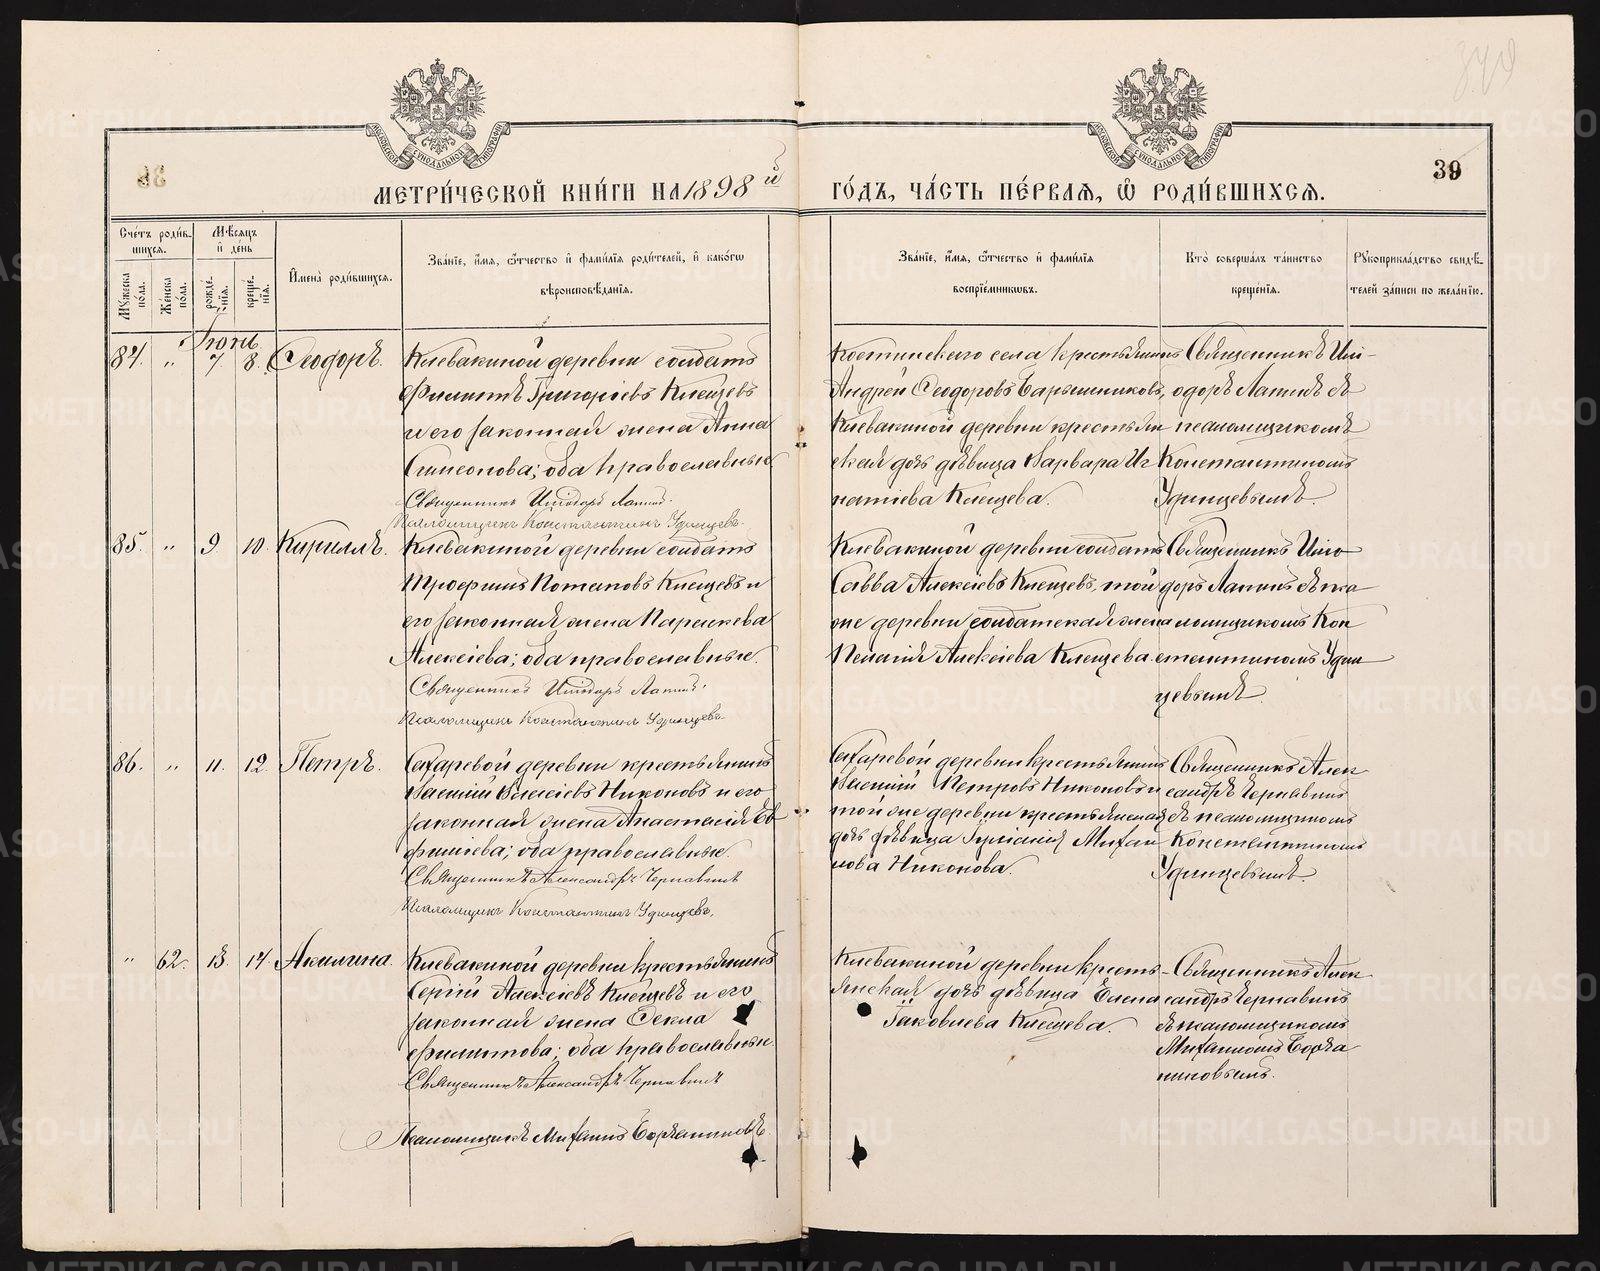 39
МЕТРИ́ЧЕСКОЙ КНИ́ГИ НА 1898й ГО́ДЪ, ЧА́СТЬ ПЕ́РВАѦ, Ѿ РОДИ́ВШИХСѦ.
Сче́тъ роди́в-
шихсѧ.
Мꙋ́жеска по́ла.
Же́нска по́ла.
Мѣ́сѧцъ и҆ де́нь
рожде́-нїѧ.
креще́-нїѧ.
И҆мена̀ роди́вшихсѧ.
Зва́нїе, и҆́мѧ, ѻ҆́тчество и҆ фами́лїѧ роди́телей, и҆ како́гѡ
вѣроисповѣ́данїѧ.
Зва́нїе, и҆́мѧ, ѻ҆́тчество и҆ фами́лїѧ
воспрїе́мникѡвъ.
Кто̀ соверша́лъ та́инство
креще́нїѧ.
Рꙋкоприкла́дство свидѣ́-
телей за́писи по жела́нїю.
Іюнь
84. " 7. 8. Ѳеодоръ.
Клевакиной деревни солдатъ
Филиппъ Григоріевъ Клещевъ
и его законная жена Анна
Симеонова; оба православные
Священникъ Исидоръ Лапинъ.
Псаломщикъ Константинъ Удинцевъ.
Костинскаго села крестьянинъ
Андрей Ѳеодоровъ Барышниковъ,
Клевакиной деревни крестьян
ская дочь дѣвица Варвара Иг
натіева Клещева.
Священникъ Иси-
доръ Лапинъ съ
псаломщикомъ
Константиномъ
Удинцевымъ.
85. " 9 10. Кириллъ.
Клевакиной деревни солдатъ
Трофимъ Потаповъ Клещевъ и
его законная жена Параскева
Алексіева; оба православные.
Священникъ Исидоръ Лапинъ.
Псаломщикъ Константинъ Удинцевъ.
Клевакиной деревни солдатъ
Савва Алексіевъ Клещевъ, той
же деревни солдатская жена
Пелагія Алексіева Клещева.
Священникъ Исио
доръ Лапинъ съ пса
ломщикомъ Кон
стантиномъ Удин
цевымъ.
86. " 11. 12. Петръ.
Сахаревой деревни крестьянинъ
Василій Никоновъ и его
законная жена Анастасія Ев
фиміева; оба православные.
Священникъ Александръ Чернавинъ
Псаломщикъ Константинъ Удинцевъ.
Сахаревой деревни крестьянинъ
Василій Петровъ Никоновъ и
той же деревни крестьянская
дочь дѣвица Іуліанія Михаи
лова Никонова.
Священникъ Алек
сандръ Чернавинъ
съ псаломщикомъ
Константиномъ
Удинцевымъ.
" 62. 13. 14. Акилина.
Клевакиной деревни крестьянинъ
Сергій Алексіевъ Клещевъ и его
законная жена Ѳекла
Филиппова; оба православные.
Священникъ Александръ Чернавинъ
Псаломщикъ Михаилъ
Клевакиной деревни кресть-
янская дочь дѣвица Елена
Іаковлева Клещева.
Священникъ Алек
сандръ Чернавинъ
съ псаломщикомъ
Михаиломъ
никовымъ.
METRIKI.GASO-URAL.RU